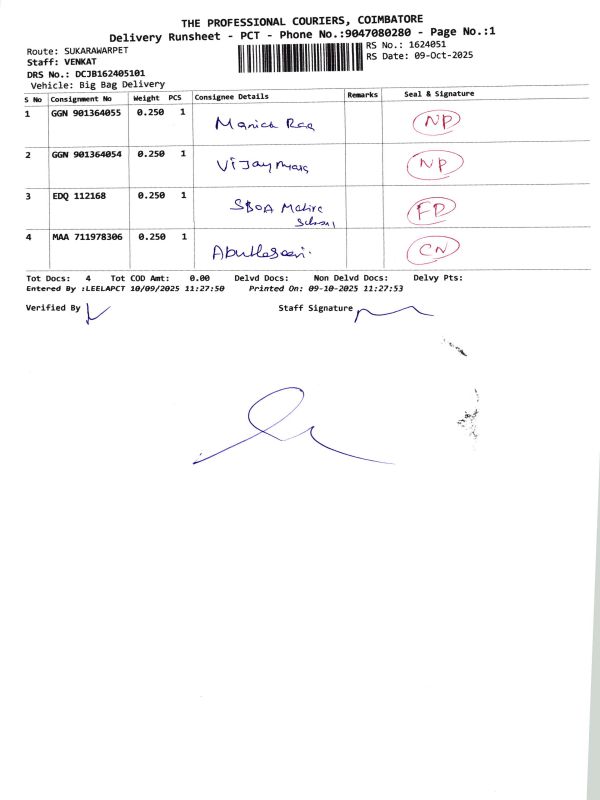 THE PROFESSIONAL COURIERS, COIMBATORE
Delivery Runsheet - PCT - Phone No.:9047080280 - Page No.:1
Route: SUKARAWARPET
RS No.: 1624051
Staff: VENKAT
RS Date: 09-Oct-2025
DRS No.: DCJB162405101
Vehicle: Big Bag Delivery
S No Consignment No Weight PCS Consignee Details Remarks Seal & Signature
1 GGN 901364055 0.250 1 Manick Raa NP
2 GGN 901364054 0.250 1 Vijay NP
3 EDQ 112168 0.250 1 SBOA Matirc FD
School
4 MAA 711978306 0.250 1 CN
Tot Docs: 4 Tot COD Amt: 0.00 Delvd Docs: Non Delvd Docs: Delvy Pts:
Entered By :LEELAPCT 10/09/2025 11:27:50 Printed On: 09-10-2025 11:27:53
Verified By Staff Signature